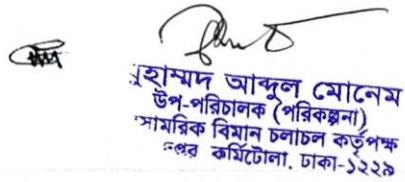 মুহাম্মদ আব্দুল মোনেম
উপ-পরিচালক (পরিকল্পনা)
বেসামরিক বিমান চলাচল কর্তৃপক্ষ
কর্মিটোলা, ঢাকা-১২২৯